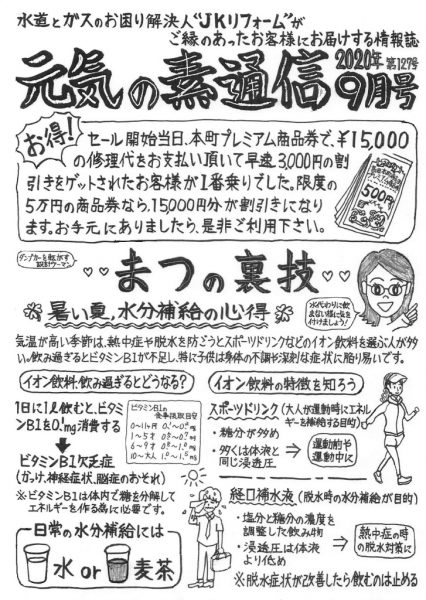 水道とガスのお困り解決人"JKリフォーム"が
ご縁のあったお客様にお届けする情報誌
元気の素通信
2020年 第127号
9月号
お得!
セール開始当日、本町プレミアム商品券で、¥15,000
の修理代をお支払い頂いて早速3,000円の割
引きをゲットされたお客様が1番乗りでした。限度の
5万円の商品券なら、15,000円分が割引きになり
ます。お手元にありましたら、是非ご利用下さい。
500円
ダンプカーを転がす
設計ウーマン
まつの裏技
水代わりに飲
まない様に気を
付けましょう!
暑い夏、水分補給の心得
気温が高い季節は、熱中症や脱水を防ごうとスポーツドリンクなどのイオン飲料を選ぶ人が多
い。飲み過ぎるとビタミンB1が不足し、特に子供は身体の不調や深刻な症状に陥り易いです。
イオン飲料、飲み過ぎるとどうなる?
1日に1ℓ飲むと、ビタミ
ンB1を0.1mg消費する
ビタミンB1の
食事摂取目安
ビタミンB1欠乏症
(かっけ、神経症状、脳症のおそれ)
※ビタミンB1は体内で糖を分解して
エネルギーを作る為に必要です。
日常の水分補給には
水 or 麦茶
イオン飲料の特徴を知ろう
スポーツドリンク(大人が運動時にエネル
ギーを補給する目的)
・糖分が多め
・多くは体液と
同じ浸透圧
運動前や
運動中に
経口補水液(脱水時の水分補給が目的)
・塩分と糖分の濃度を
調整した飲み物
・浸透圧は体液
より低め
熱中症の時
の脱水対策に
※脱水症状が改善したら飲むのは止める